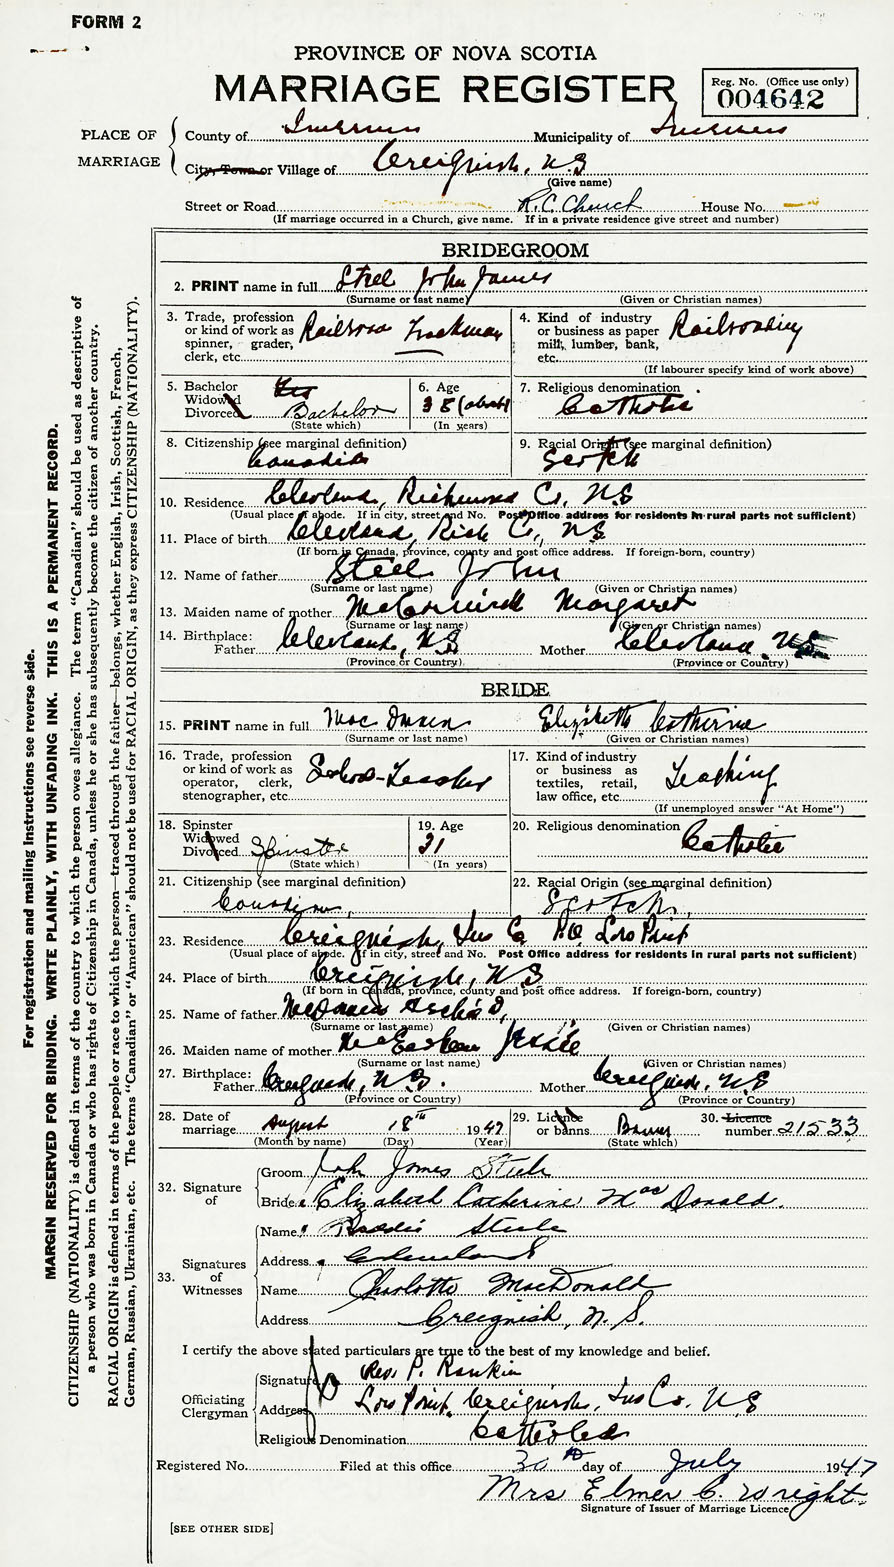 FORM 2
PROVINCE OF NOVA SCOTIA
MARRIAGE REGISTER
Reg. No. (Office use only)
004642
PLACE OF MARRIAGE
County of Inverness Municipality of Inverness
City, Town or Village of Creignish, N.S
(Give name)
Street or Road R.C. Church House No.
(If marriage occurred in a Church, give name. If in a private residence give street and number)
BRIDEGROOM
2. PRINT name in full Steel John James
(Surname or last name) (Given or Christian names)
3. Trade, profession or kind of work as spinner, grader, clerk, etc. Railroad Trackman
4. Kind of industry or business as paper mill, lumber, bank, etc. Railroading
(If labourer specify kind of work above)
5. Bachelor Widowed Divorced Bachelor
(State which)
6. Age 38 (about)
(In years)
7. Religious denomination Catholic
8. Citizenship (see marginal definition) Canadian
9. Racial Origin (see marginal definition) Scotch
10. Residence Clevland, Richmond Co, N.S
(Usual place of abode. If in city, street and No. Post Office address for residents in rural parts not sufficient)
11. Place of birth Clevland, Rich Co., N.S
(If born in Canada, province, county and post office address. If foreign-born, country)
12. Name of father Steel John
(Surname or last name) (Given or Christian names)
13. Maiden name of mother Margaret
(Surname or last name) (Given or Christian names)
14. Birthplace: Father Clevland, N.S Mother Clevland N.S
(Province or Country) (Province or Country)
BRIDE
15. PRINT name in full Elizabeth Catherine
(Surname or last name) (Given or Christian names)
16. Trade, profession or kind of work as operator, clerk, stenographer, etc. School-Teacher
17. Kind of industry or business as textiles, retail, law office, etc. Teaching
(If unemployed answer "At Home")
18. Spinster Widowed Divorced Spinster
(State which)
19. Age 21
(In years)
20. Religious denomination Catholic
21. Citizenship (see marginal definition) Canadian
22. Racial Origin (see marginal definition) Scotch
23. Residence Creignish, Inv Co P.O. Low Point
(Usual place of abode. If in city, street and No. Post Office address for residents in rural parts not sufficient)
24. Place of birth Creignish, N.S
(If born in Canada, province, county and post office address. If foreign-born, country)
25. Name of father
(Surname or last name) (Given or Christian names)
26. Maiden name of mother McEachern Jessie
(Surname or last name) (Given or Christian names)
27. Birthplace: Father Creignish, N.S. Mother Creignish, N.S
(Province or Country) (Province or Country)
28. Date of marriage August 18th 1947
(Month by name) (Day) (Year)
29. Licence or banns Banns
(State which)
30. Licence number 21533
32. Signature of
Groom John James Steele
Bride Elizabeth Catherine MacDonald.
33. Signatures of Witnesses
Name Steele
Address
Name Charlotte MacDonald
Address Creignish, N. S.
I certify the above stated particulars are true to the best of my knowledge and belief.
Officiating Clergyman
Signature Rev. P. Rankin
Address Low Point, Creignish, Inv Co. N.S
Religious Denomination Catholic
Registered No. Filed at this office 30th day of July 1947
Mrs Elmer C. Wright.
Signature of Issuer of Marriage Licence
[SEE OTHER SIDE]
For registration and mailing instructions see reverse side.
MARGIN RESERVED FOR BINDING. WRITE PLAINLY, WITH UNFADING INK. THIS IS A PERMANENT RECORD.
CITIZENSHIP (NATIONALITY) is defined in terms of the country to which the person owes allegiance. The term "Canadian" should be used as descriptive of
a person who was born in Canada or who has rights of Citizenship in Canada, unless he or she has subsequently become the citizen of another country.
RACIAL ORIGIN is defined in terms of the people or race to which the person—traced through the father—belongs, whether English, Irish, Scottish, French,
German, Russian, Ukrainian, etc. The terms "Canadian" or "American" should not be used for RACIAL ORIGIN, as they express CITIZENSHIP (NATIONALITY).